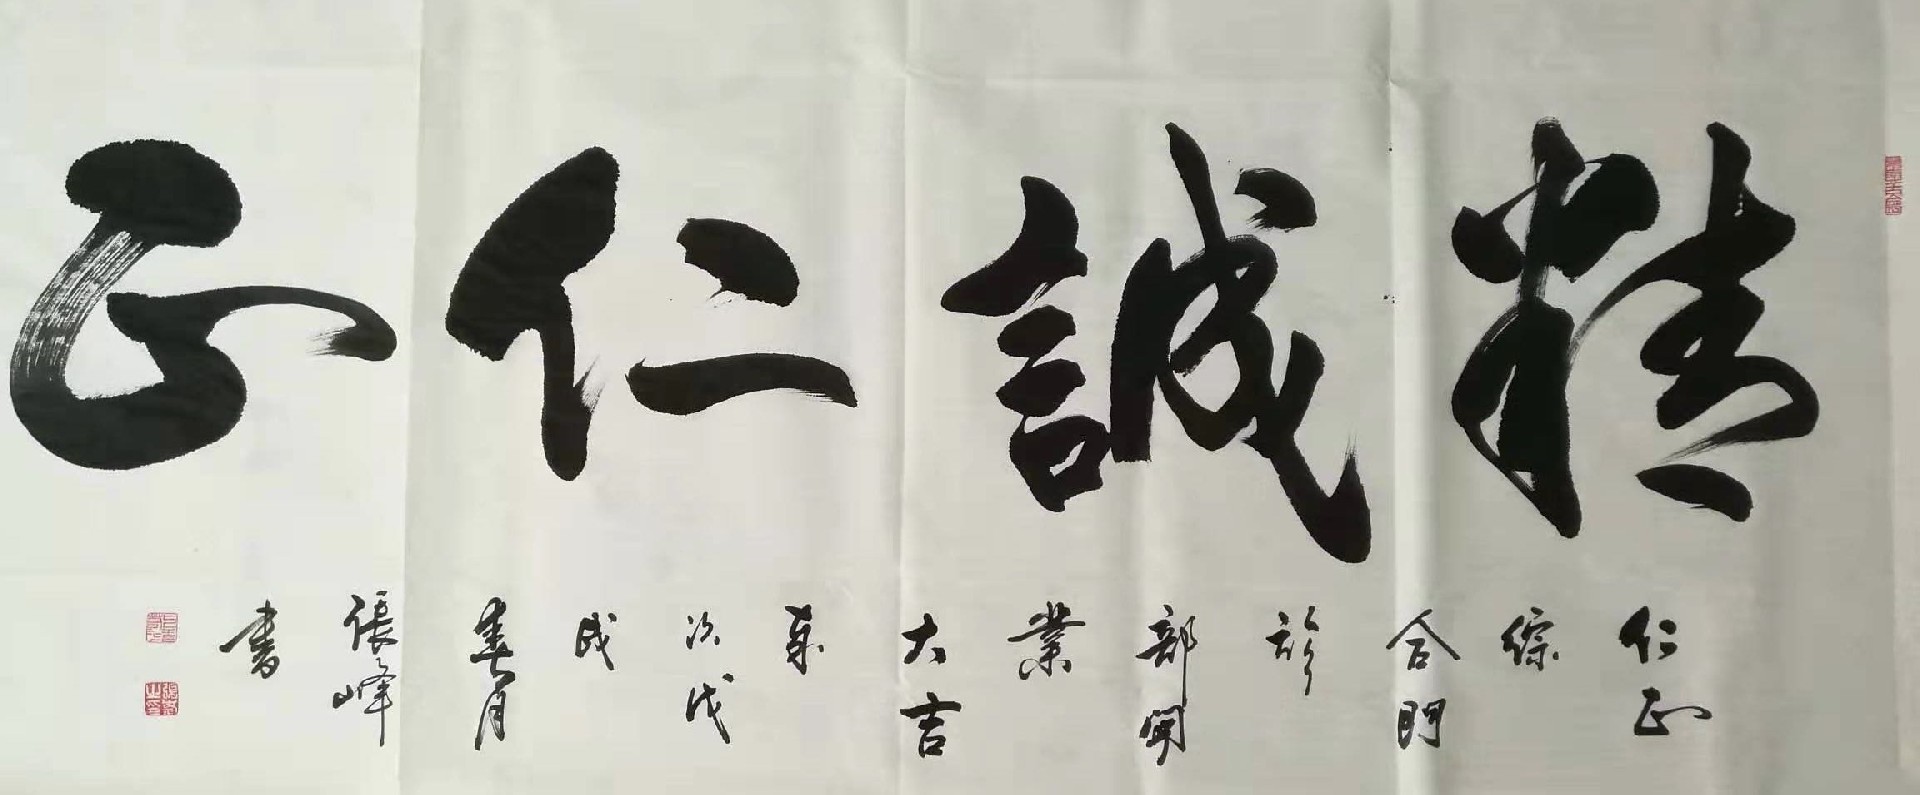 精誠仁正
仁正
綜
合門
診
部開
業
大吉
歲
次戊
戌
春月
張峰
書